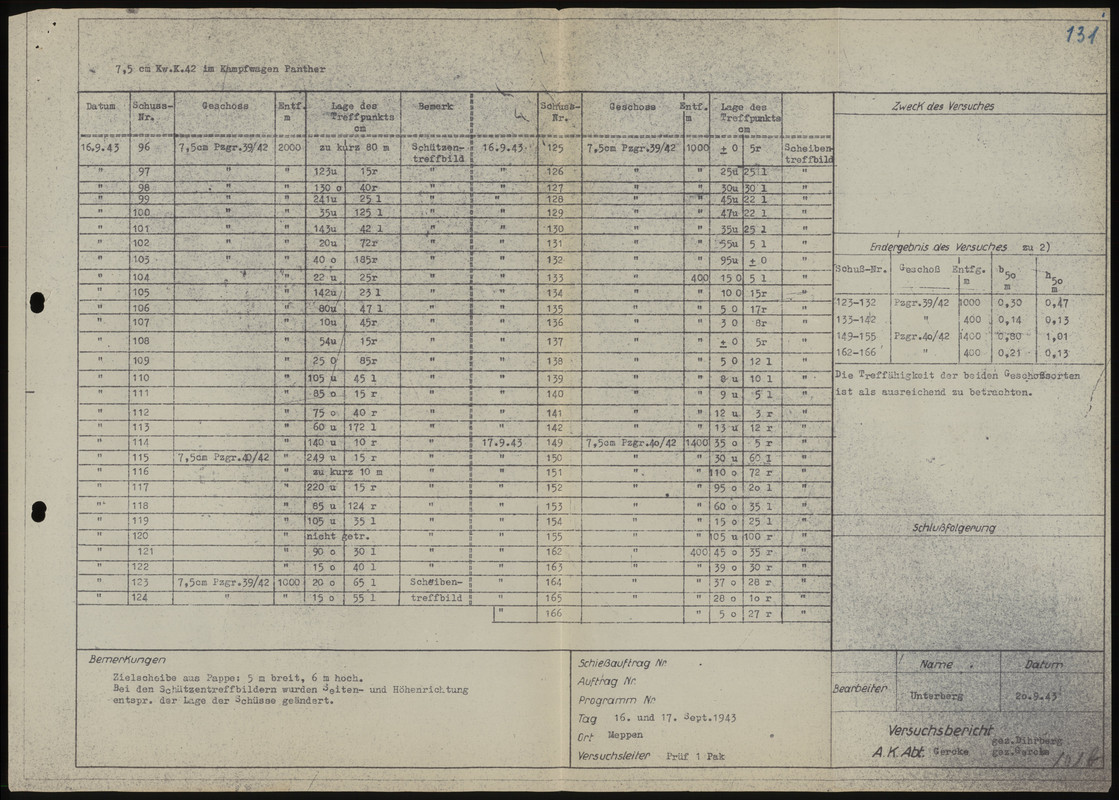 131
7,5 cm Kw.K.42 im Kampfwagen Panther
Datum Schuss-Nr. Geschoss Entf. m Lage des Treffpunkts cm Bemerk
16.9.43 96 7,5cm Pzgr.39/42 2000 zu kurz 80 m Schützen-treffbild
" 97 " " 123u 15r "
" 98 " " 130 o 40r "
" 99 " " 241u 25 l "
" 100 " " 35u 125 l "
" 101 " " 143u 42 l "
" 102 " " 20u 72r "
" 103 " " 40 o 185r "
" 104 " " 22 u 25r "
" 105 " " 142u 23 l "
" 106 " " 80u 47 l "
" 107 " " 10u 45r "
" 108 " 54u 15r "
" 109 " 25 o 85r "
" 110 " 105 u 45 l "
" 111 " 85 o 15 r "
" 112 " 75 o 40 r "
" 113 " 60 u 172 l "
" 114 " 140 u 10 r "
" 115 7,5cm Pzgr.40/42 " 249 u 15 r "
" 116 " zu kurz 10 m "
" 117 " 220 u 15 r "
" 118 " 85 u 124 r "
" 119 " 105 u 35 l "
" 120 " nicht getr. "
" 121 " 90 o 30 l "
" 122 " 15 o 40 l "
" 123 7,5cm Pzgr.39/42 1000 20 o 65 l Scheiben-
" 124 " " 15 o 55 l treffbild
Schuss-Nr. Geschoss Entf. m Lage des Treffpunkts cm
16.9.43 125 7,5cm Pzgr.39/42 1000 ± 0 5r Scheiben-treffbild
" 126 " " 25u 25 l "
" 127 " " 30u 30 l "
" 128 " " 45u 22 l "
" 129 " " 47u 22 l "
" 130 " " 35u 25 l "
" 131 " " 55u 5 l "
" 132 " " 95u ± 0 "
" 133 " 400 15 0 5 l "
" 134 " " 10 0 15r "
" 135 " " 5 0 17r "
" 136 " " 3 0 8r "
" 137 " " ± 0 5r "
" 138 " " 5 0 12 l "
" 139 " " 8 u 10 l "
" 140 " " 9 u 5 l "
" 141 " " 12 u 3 r "
" 142 " " 13 u 12 r "
17.9.43 149 7,5cm Pzgr.40/42 1400 35 o 5 r "
" 150 " " 30 u 60 l "
" 151 " " 110 o 72 r "
" 152 " " 95 o 20 l "
" 153 " " 60 o 35 l "
" 154 " " 15 o 25 l "
" 155 " " 105 u 100 r "
" 162 " 400 45 o 35 r "
" 163 " " 39 o 30 r "
" 164 " " 37 o 28 r "
" 165 " " 28 o 10 r "
" 166 " 5 o 27 r "
Zweck des Versuches
Endergebnis des Versuches zu 2)
Schuß-Nr. Geschoß Entfg. m b50 m h50 m
123-132 Pzgr.39/42 1000 0,30 0,47
133-142 " 400 0,14 0,13
149-155 Pzgr.40/42 1400 0,80 1,01
162-166 " 400 0,21 0,13
Die Treffähigkeit der beiden Geschoßsorten
ist als ausreichend zu betrachten.
Schlußfolgerung
Bemerkungen
Zielscheibe aus Pappe: 5 m breit, 6 m hoch.
Bei den Schützentreffbildern wurden Seiten- und Höhenrichtung
entspr. der Lage der Schüsse geändert.
Schießauftrag Nr.
Auftrag Nr.
Programm Nr
Tag 16. und 17. Sept.1943
Ort Meppen
Versuchsleiter Prüf 1 Pak
Name Datum
Bearbeiter Unterberg 20.9.43
Versuchsbericht
A.K.Abt. Gercke
gez.Dihrberg
gez.Gercke